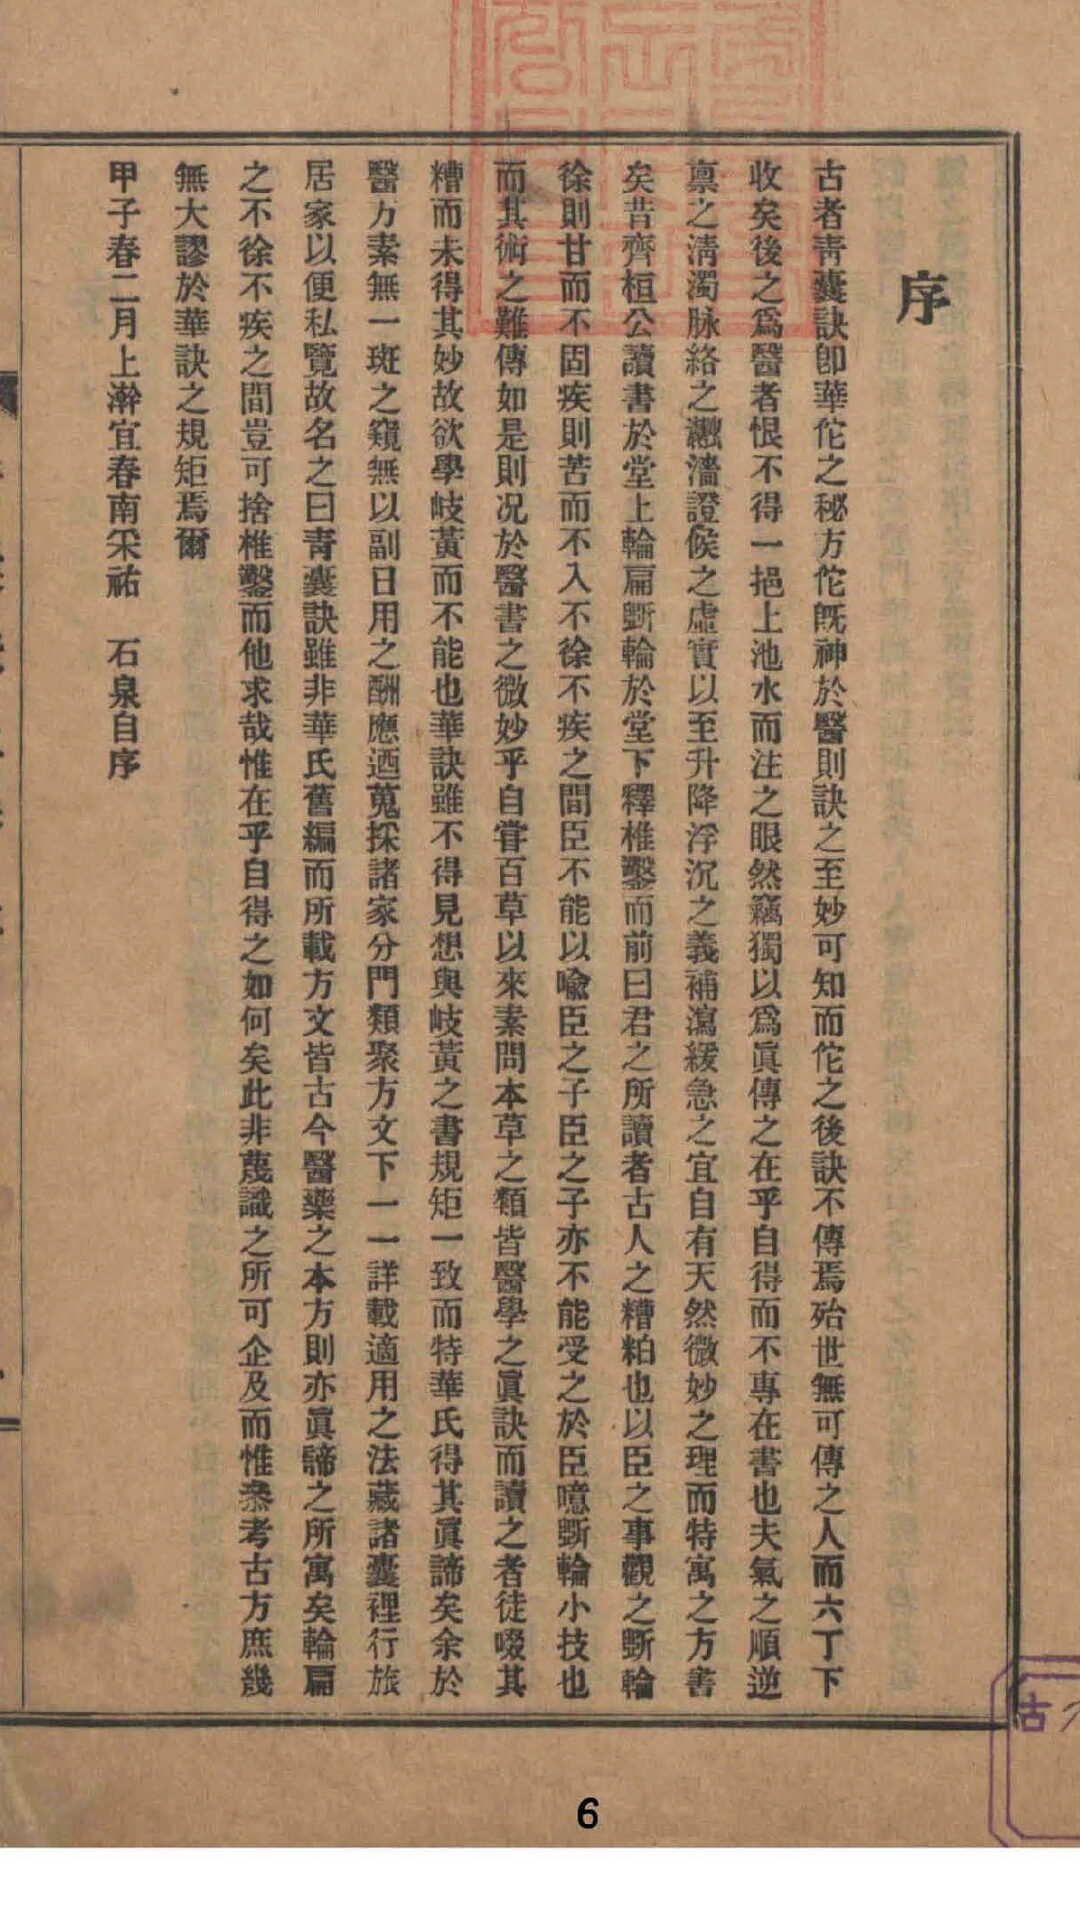 序
古者靑囊訣卽華佗之秘方佗旣神於醫則訣之至妙可知而佗之後訣不傳焉殆世無可傳之人而六丁下
收矣後之爲醫者恨不得一挹上池水而注之眼然竊獨以爲眞傳之在乎自得而不專在書也夫氣之順逆
禀之淸濁脉絡之瀜濇證候之虛實以至升降浮沉之義補瀉緩急之宜自有天然微妙之理而特寓之方書
矣昔齊桓公讀書於堂上輪扁斲輪於堂下釋椎鑿而前曰君之所讀者古人之糟粕也以臣之事觀之斲輪
徐則甘而不固疾則苦而不入不徐不疾之間臣不能以喩臣之子臣之子亦不能受之於臣噫斲輪小技也
而其術之難傳如是則况於醫書之微妙乎自甞百草以來素問本草之類皆醫學之眞訣而讀之者徒啜其
糟而未得其妙故欲學岐黃而不能也華訣雖不得見想與岐黃之書規矩一致而特華氏得其眞諦矣余於
醫方素無一斑之窺無以副日用之酬應迺蒐採諸家分門類聚方文下一一詳載適用之法藏諸囊裡行旅
居家以便私覽故名之曰靑囊訣雖非華氏舊編而所載方文皆古今醫藥之本方則亦眞諦之所寓矣輪扁
之不徐不疾之間豈可捨椎鑿而他求哉惟在乎自得之如何矣此非蔑識之所可企及而惟叅考古方庶幾
無大謬於華訣之規矩焉爾
甲子春二月上澣宜春南采祐 石泉自序
古
6